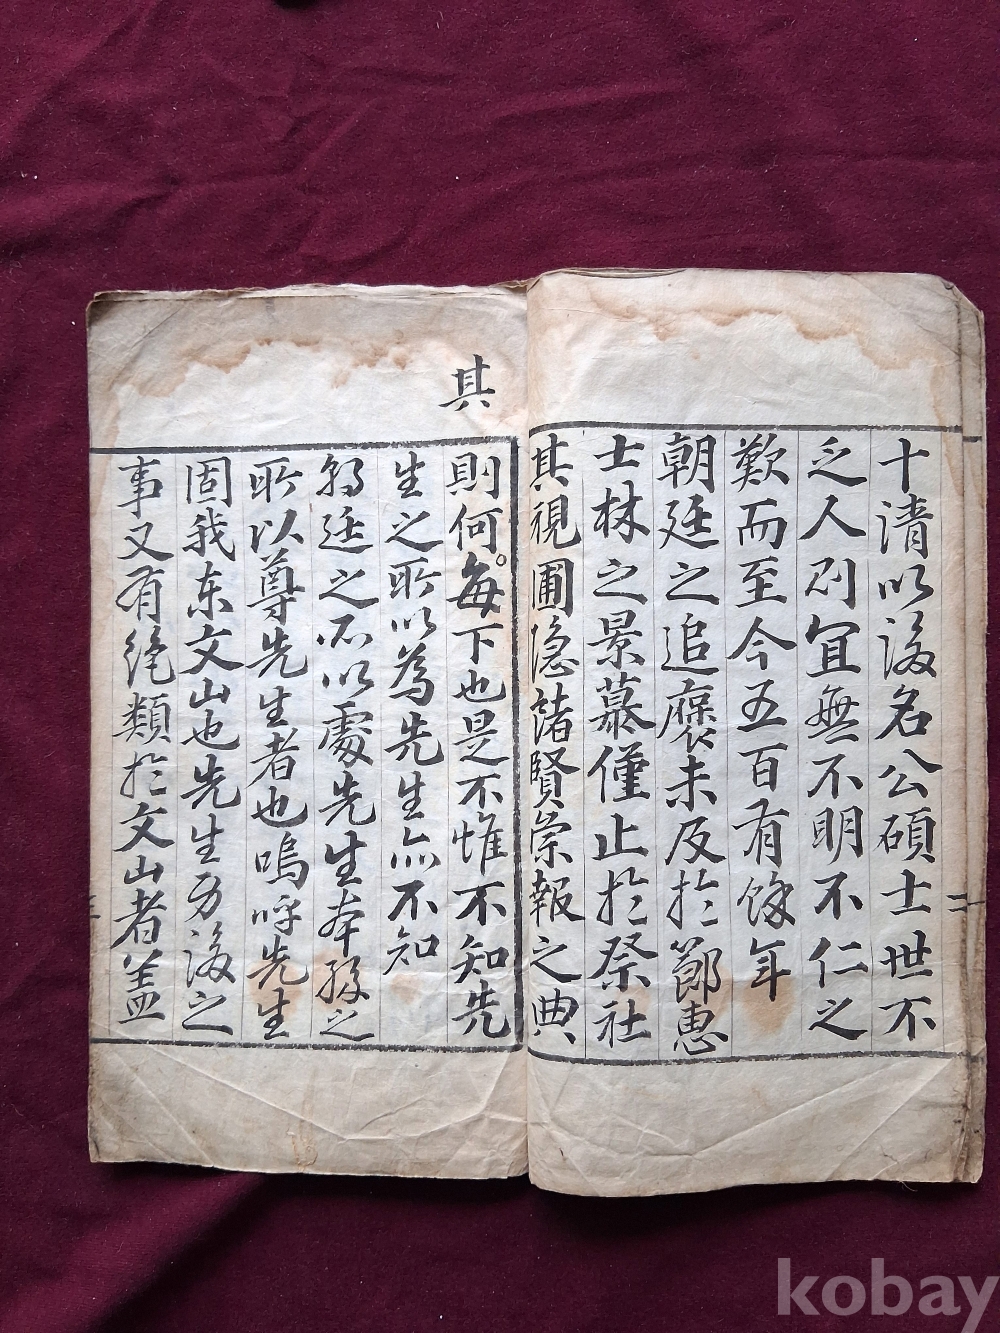 十清以後名公碩士世不
乏人則宜無不明不仁之
歎而至今五百有餘年
朝廷之追褒未及於鄭惠
士林之景慕僅止於祭社
其視圃隱諸賢崇報之典
其
則何。每下也是不惟不知先
生之所以為先生亦不知
朝廷之所以處先生本孫之
所以尊先生者也嗚呼先生
固我东文山也先生身後之
事又有絶類於文山者盖
kobay